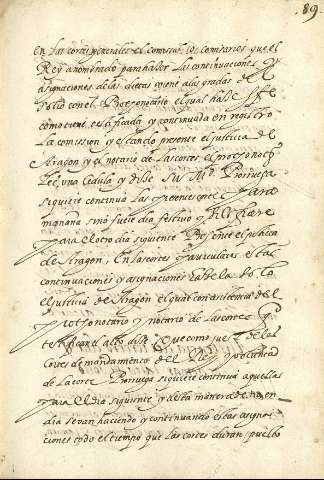 89.
En las cortes generales el comisar. los comisarios que el
Rey a nombrado para haser las continuaciones y
asignaciones de los dietas viene a las gradas del
solio con el Protonotario el qual hase fe
como tiene testificada y continuada en registro
la comision y estando presente el justicia de
Aragon y el notario de las cortes el protonot.
lee una cedula y dise su Mag. Proroga
siquiere continua las presentes cortes para
mañana sino fuere dia festivo y si lo fuere
para el otro dia siguiente Presente el justicia
de Aragon. En las cortes particulares estas
continuaciones y asignaciones las hase solo
el justicia de Aragon el qual con asistencia del
protonotario y notario de las cortes
testifican el acto dise que como jues de las
Cortes de mandamiento del Rey y voluntad
de la corte Proroga siquiere continua aquellas
para el dia siguiente y desta manera de dia en
dia se van haciendo y continuando estas asigna
ciones todo el tiempo que las cortes duran, puesto